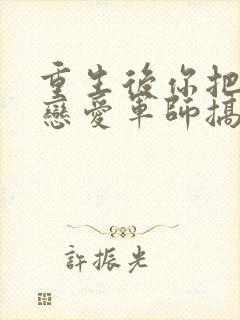 重生後你把
戀愛軍師搞
許振光